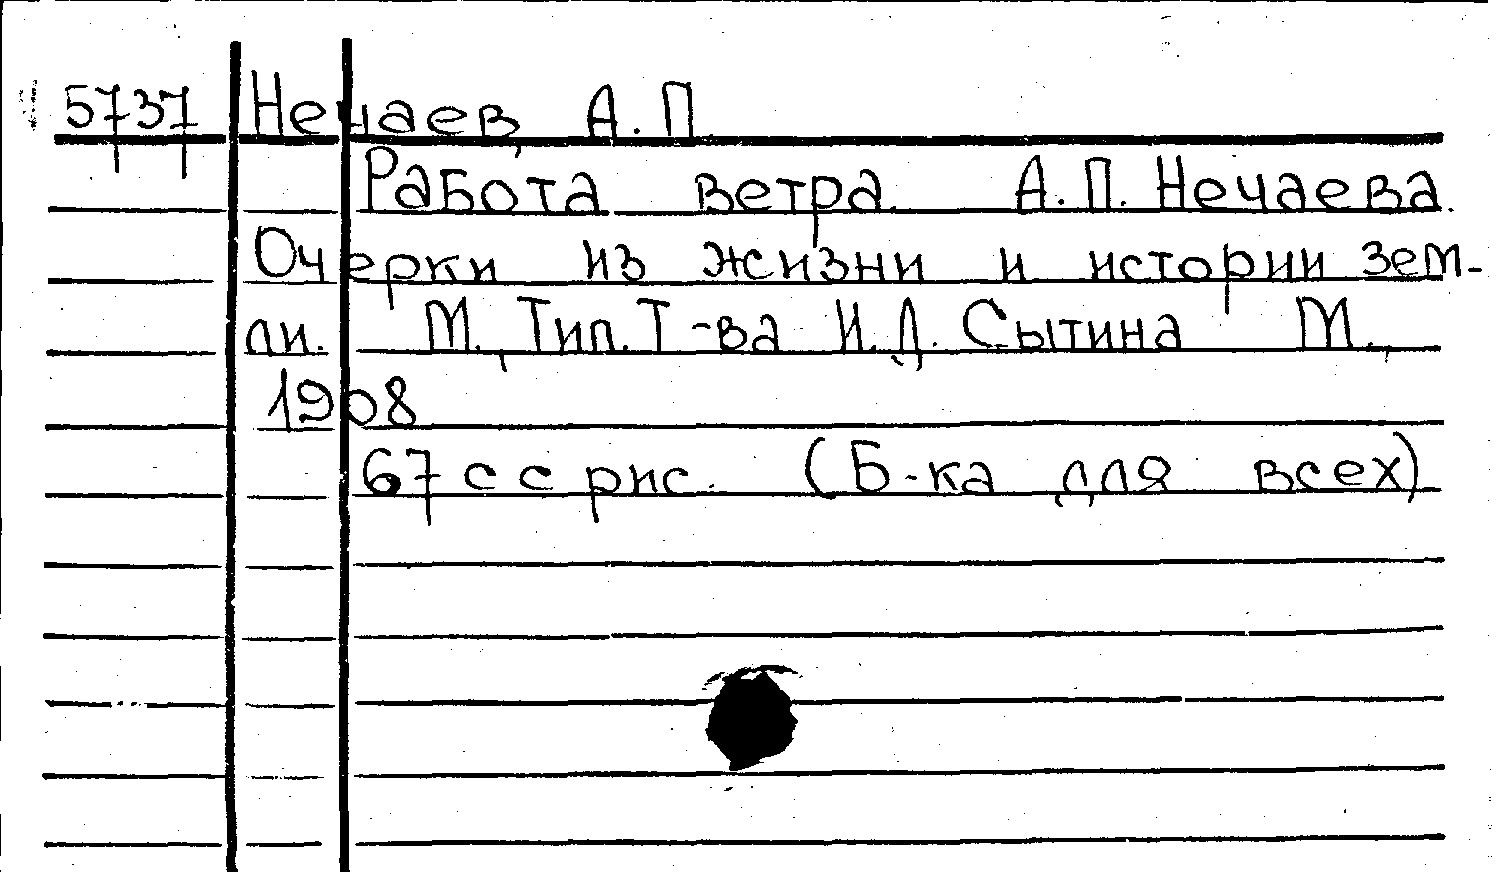 5737 Нечаев, А.П.
Работа ветра. А.П. Нечаева.
Очерки из жизни и истории зем-
ли. М., Тип. Т-ва И.Д. Сытина М.,
1908
67 с с рис. (Б-ка для всех)